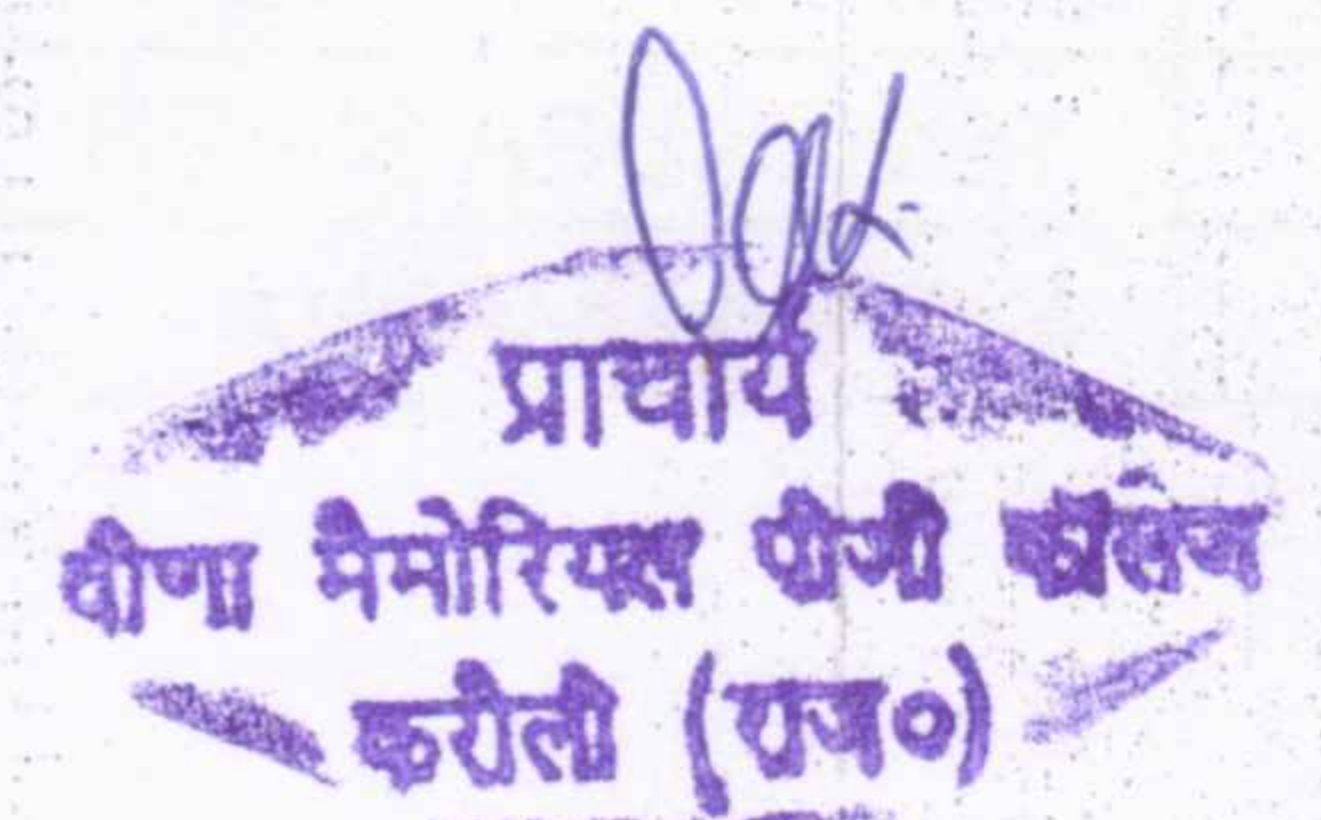 प्राचार्य
वीणा मैमोरियल पीजी कॉलेज
करौली (राज०)